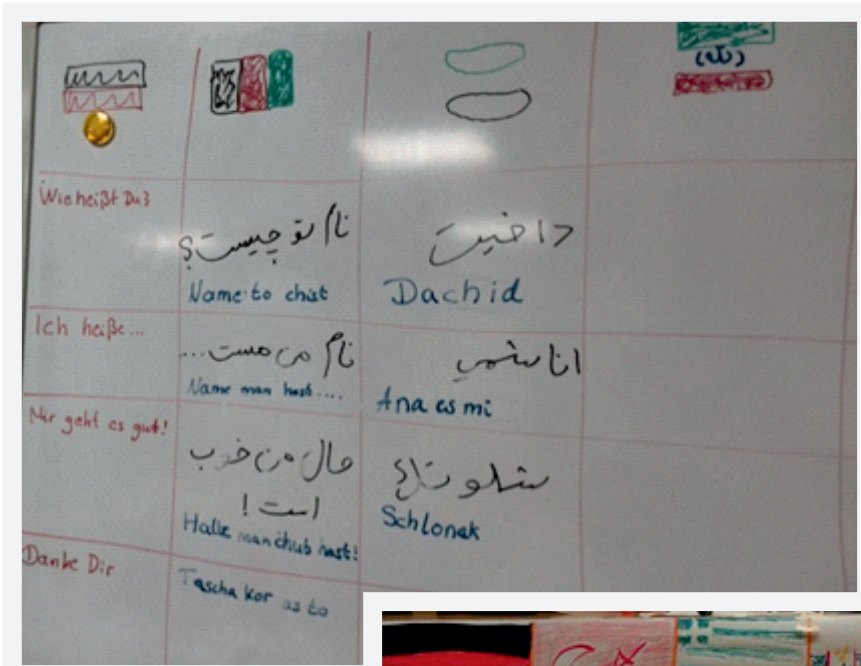 Wie heißt Du?
نام تو چیست؟
Name to chist
داخيت
Dachid
Ich heiße...
نام من هست...
Name man hast....
انا
Ana es mi
Mir geht es gut!
حال من خوب
است!
Halle man chub hast!
Schlonak
Danke Dir
Taschakor as to